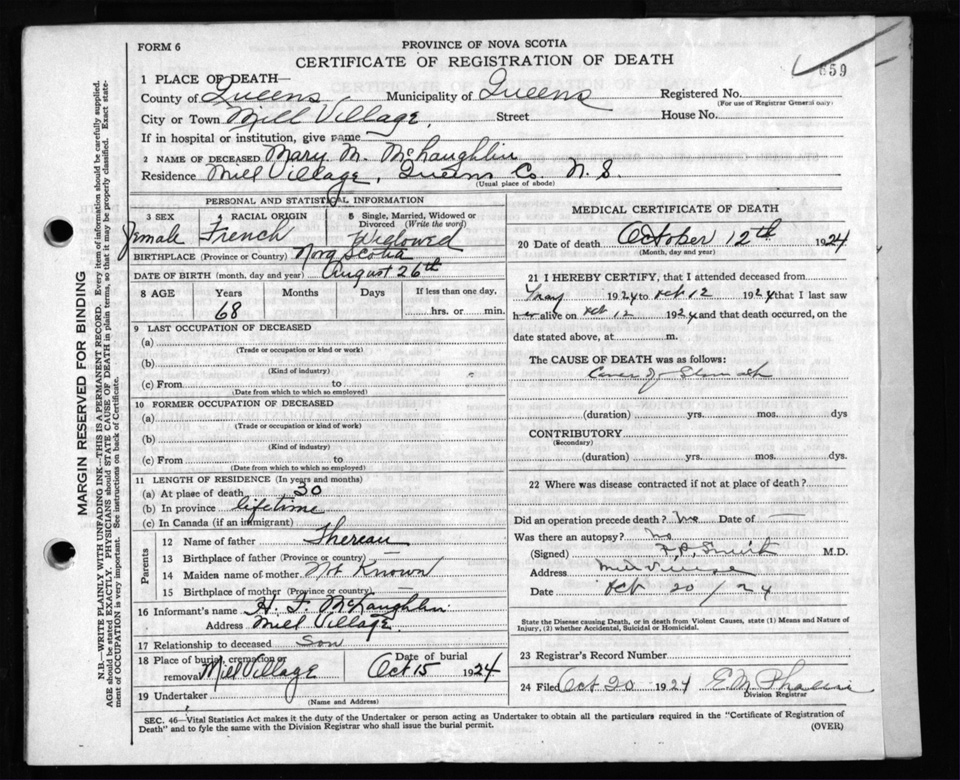 FORM 6
PROVINCE OF NOVA SCOTIA
CERTIFICATE OF REGISTRATION OF DEATH
659
1 PLACE OF DEATH—
County of Queens Municipality of Queens Registered No.
(For use of Registrar General only)
City or Town Mill Village, Street House No.
If in hospital or institution, give name —
2 NAME OF DECEASED Mary M. McLaughlin
Residence Mill Village, Queens Co. N. S.
(Usual place of abode)
PERSONAL AND STATISTICAL INFORMATION
3 SEX 4 RACIAL ORIGIN 5 Single, Married, Widowed or Divorced (Write the word)
Female French Widowed
BIRTHPLACE (Province or Country) Nova Scotia
DATE OF BIRTH (month, day and year) August 26th
8 AGE Years Months Days If less than one day,
68 hrs. or min.
9 LAST OCCUPATION OF DECEASED
(a)
(Trade or occupation or kind or work)
(b)
(Kind of industry)
(c) From to
(Date from which to which so employed)
10 FORMER OCCUPATION OF DECEASED
(a)
(Trade or occupation or kind of work)
(b)
(Kind of industry)
(c) From to
(Date from which to which so employed)
11 LENGTH OF RESIDENCE (In years and months)
(a) At place of death 30
(b) In province lifetime
(c) In Canada (if an immigrant)
Parents
12 Name of father Thereau
13 Birthplace of father (Province or country) —
14 Maiden name of mother Not Known
15 Birthplace of mother (Province or country) —
16 Informant's name H. F. McLaughlin
Address Mill Village.
17 Relationship to deceased Son
18 Place of burial, cremation or removal Mill Village Date of burial Oct 15 1924
19 Undertaker
(Name and Address)
MEDICAL CERTIFICATE OF DEATH
20 Date of death October 12th 1924
(Month, day and year)
21 I HEREBY CERTIFY, that I attended deceased from
May 1924 to Oct 12 1924 that I last saw
her alive on Oct 12 1924 and that death occurred, on the
date stated above, at m.
The CAUSE OF DEATH was as follows:
Cancer of Stomach
(duration) yrs. mos. dys
CONTRIBUTORY
(Secondary)
(duration) yrs. mos. dys.
22 Where was disease contracted if not at place of death?
Did an operation precede death? No Date of —
Was there an autopsy? No
(Signed) Smith M.D.
Address Mill Village
Date Oct 20/24
State the Disease causing Death, or in death from Violent Causes, state (1) Means and Nature of
Injury, (2) whether Accidental, Suicidal or Homicidal.
23 Registrar's Record Number
24 Filed Oct 20 1924 E. M.
Division Registrar
SEC. 46—Vital Statistics Act makes it the duty of the Undertaker or person acting as Undertaker to obtain all the particulars required in the "Certificate of Registration of
Death" and to fyle the same with the Division Registrar who shall issue the burial permit. (OVER)
MARGIN RESERVED FOR BINDING
N.B.—WRITE PLAINLY WITH UNFADING INK—THIS IS A PERMANENT RECORD. Every item of information should be carefully supplied.
AGE should be stated EXACTLY. PHYSICIANS should STATE CAUSE OF DEATH in plain terms, so that it may be properly classified. Exact state-
ment of OCCUPATION is very important. See instructions on back of Certificate.